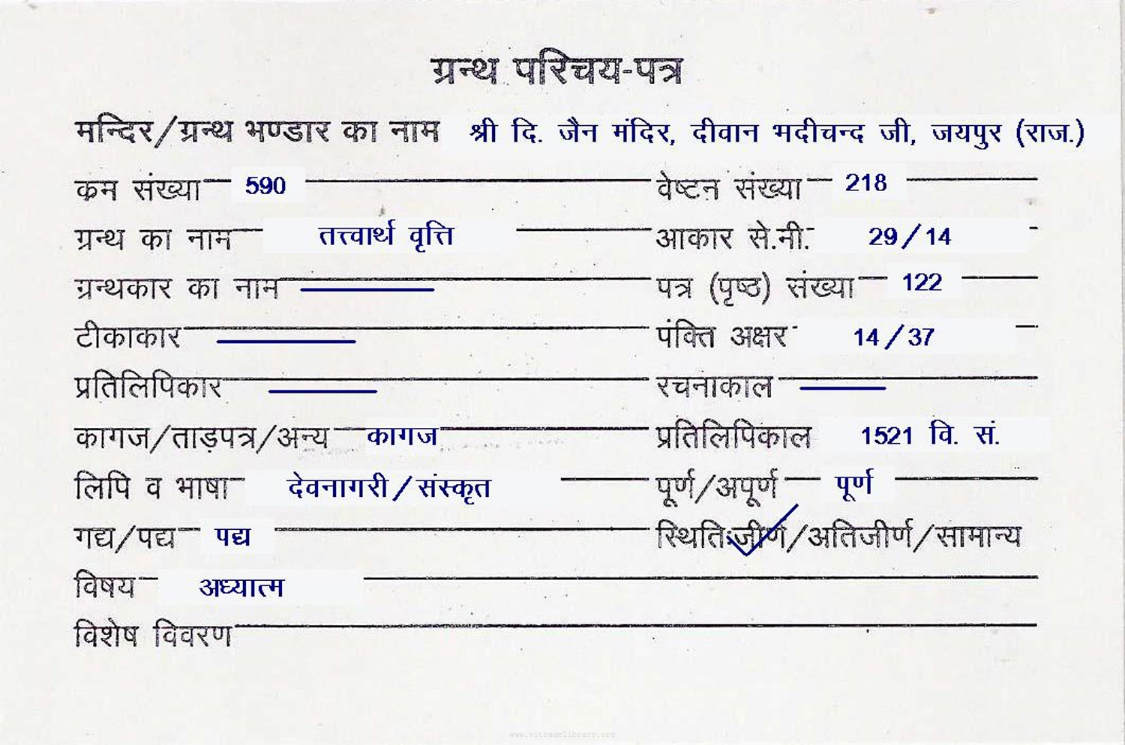 ग्रन्थ परिचय-पत्र
मन्दिर/ग्रन्थ भण्डार का नाम श्री दि. जैन मंदिर, दीवान भदीचन्द जी, जयपुर (राज.)
क्रम संख्या 590 वेष्टन संख्या 218
ग्रन्थ का नाम तत्त्वार्थ वृत्ति आकार से.मी. 29/14
ग्रन्थकार का नाम पत्र (पृष्ठ) संख्या 122
टीकाकार पंक्ति अक्षर 14/37
प्रतिलिपिकार रचनाकाल
कागज/ताड़पत्र/अन्य कागज प्रतिलिपिकाल 1521 वि. सं.
लिपि व भाषा देवनागरी/संस्कृत पूर्ण/अपूर्ण पूर्ण
गद्य/पद्य पद्य स्थिति:जीर्ण/अतिजीर्ण/सामान्य
विषय अध्यात्म
विशेष विवरण